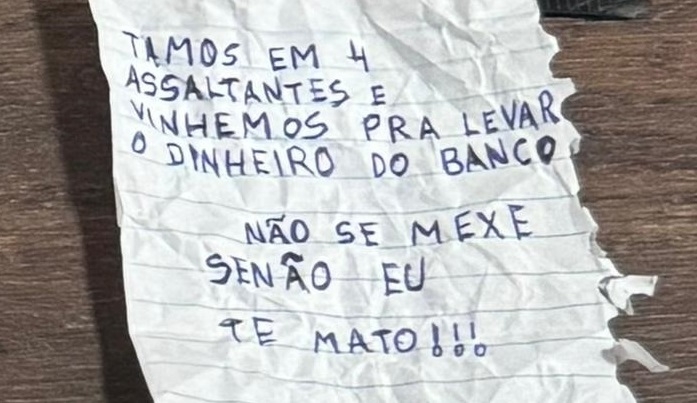 TAMOS EM 4
ASSALTANTES E
VINHEMOS PRA LEVAR
O DINHEIRO DO BANCO
NÃO SE MEXE
SENÃO EU
TE MATO!!!